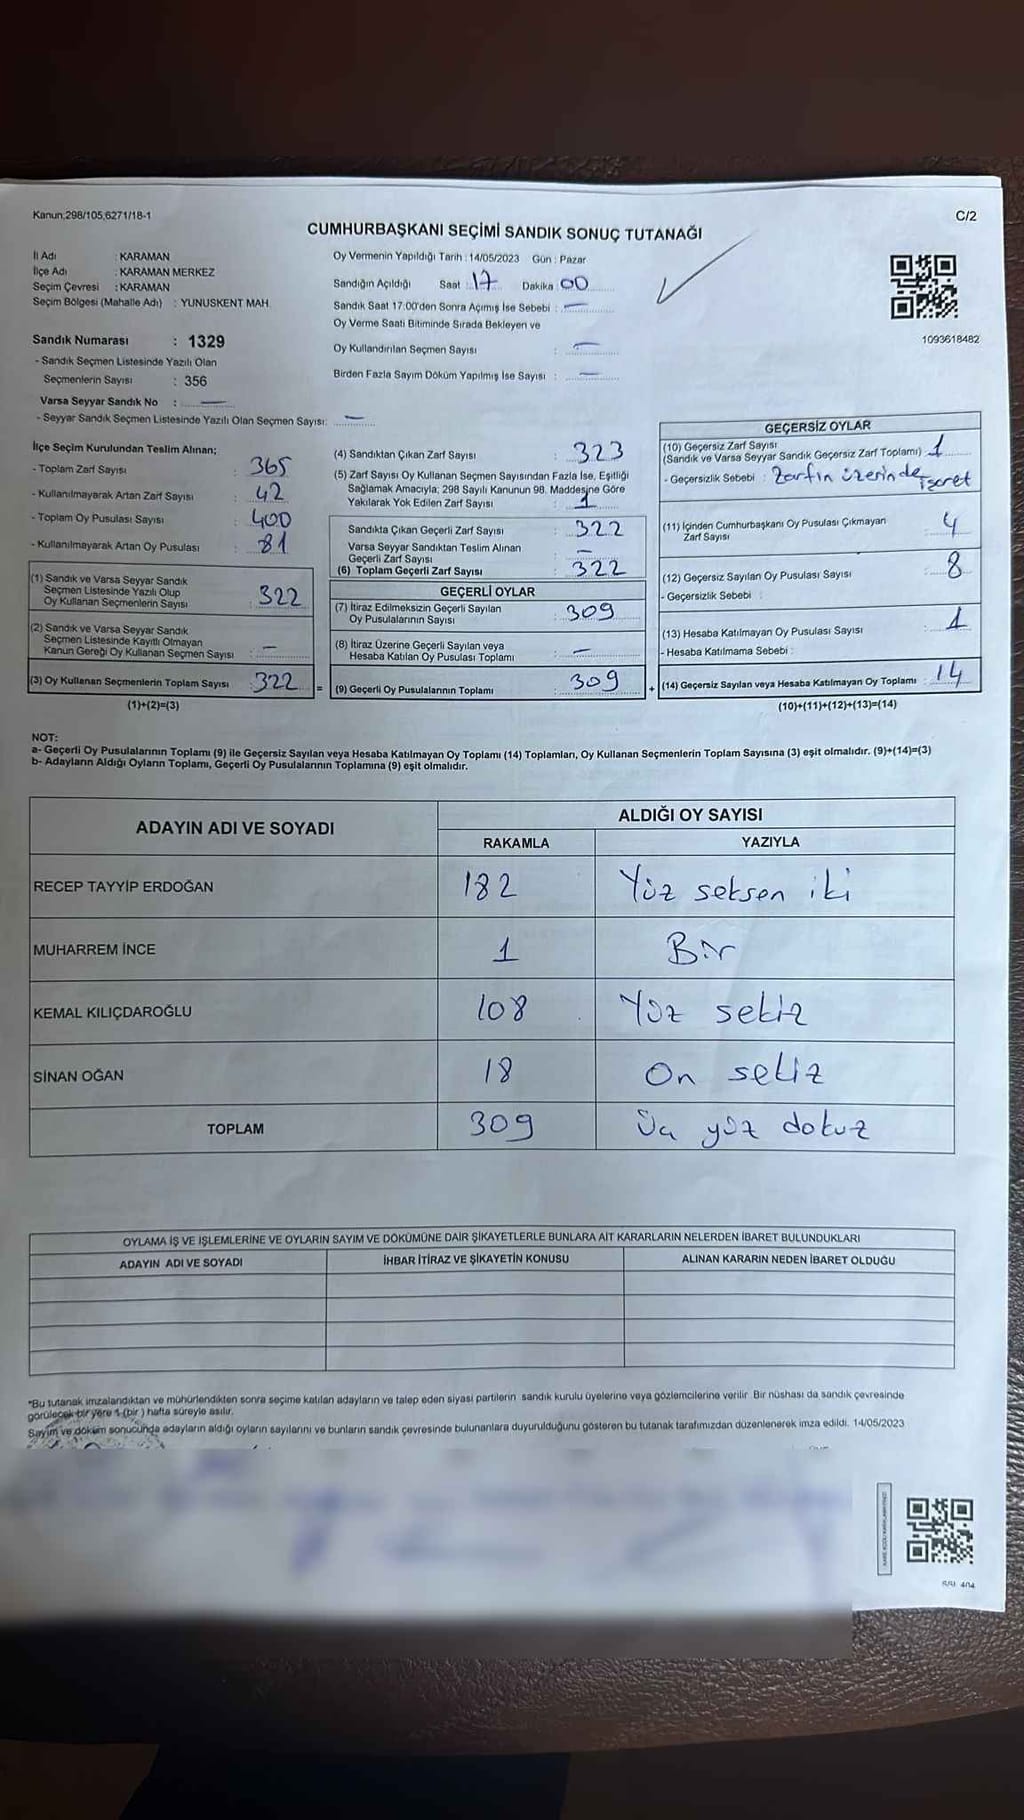 Kanun;298/105,6271/18-1
C/2
CUMHURBAŞKANI SEÇİMİ SANDIK SONUÇ TUTANAĞI
İl Adı : KARAMAN
İlçe Adı : KARAMAN MERKEZ
Seçim Çevresi : KARAMAN
Seçim Bölgesi (Mahalle Adı) : YUNUSKENT MAH.
Sandık Numarası : 1329
- Sandık Seçmen Listesinde Yazılı Olan
Seçmenlerin Sayısı : 356
Varsa Seyyar Sandık No : —
- Seyyar Sandık Seçmen Listesinde Yazılı Olan Seçmen Sayısı: —
Oy Vermenin Yapıldığı Tarih : 14/05/2023 Gün : Pazar
Sandığın Açıldığı Saat : 17 Dakika : 00
Sandık Saat 17:00'den Sonra Açımış İse Sebebi : —
Oy Verme Saati Bitiminde Sırada Bekleyen ve
Oy Kullandırılan Seçmen Sayısı : —
Birden Fazla Sayım Döküm Yapılmış İse Sayısı : —
1093618482
İlçe Seçim Kurulundan Teslim Alınan;
- Toplam Zarf Sayısı : 365
- Kullanılmayarak Artan Zarf Sayısı : 42
- Toplam Oy Pusulası Sayısı : 400
- Kullanılmayarak Artan Oy Pusulası : 81
(1) Sandık ve Varsa Seyyar Sandık
Seçmen Listesinde Yazılı Olup
Oy Kullanan Seçmenlerin Sayısı : 322
(2) Sandık ve Varsa Seyyar Sandık
Seçmen Listesinde Kayıtlı Olmayan
Kanun Gereği Oy Kullanan Seçmen Sayısı : —
(3) Oy Kullanan Seçmenlerin Toplam Sayısı : 322 =
(1)+(2)=(3)
(4) Sandıktan Çıkan Zarf Sayısı : 323
(5) Zarf Sayısı Oy Kullanan Seçmen Sayısından Fazla İse, Eşitliği
Sağlamak Amacıyla; 298 Sayılı Kanunun 98. Maddesine Göre
Yakılarak Yok Edilen Zarf Sayısı : 1
Sandıkta Çıkan Geçerli Zarf Sayısı : 322
Varsa Seyyar Sandıktan Teslim Alınan
Geçerli Zarf Sayısı : —
(6) Toplam Geçerli Zarf Sayısı : 322
GEÇERLİ OYLAR
(7) İtiraz Edilmeksizin Geçerli Sayılan
Oy Pusulalarının Sayısı : 309
(8) İtiraz Üzerine Geçerli Sayılan veya
Hesaba Katılan Oy Pusulası Toplamı : —
(9) Geçerli Oy Pusulalarının Toplamı : 309 +
GEÇERSİZ OYLAR
(10) Geçersiz Zarf Sayısı
(Sandık ve Varsa Seyyar Sandık Geçersiz Zarf Toplamı) : 1
- Geçersizlik Sebebi : Zarfın üzerinde
işaret
(11) İçinden Cumhurbaşkanı Oy Pusulası Çıkmayan
Zarf Sayısı : 4
(12) Geçersiz Sayılan Oy Pusulası Sayısı : 8
- Geçersizlik Sebebi :
(13) Hesaba Katılmayan Oy Pusulası Sayısı : 1
- Hesaba Katılmama Sebebi :
(14) Geçersiz Sayılan veya Hesaba Katılmayan Oy Toplamı : 14
(10)+(11)+(12)+(13)=(14)
NOT:
a- Geçerli Oy Pusulalarının Toplamı (9) ile Geçersiz Sayılan veya Hesaba Katılmayan Oy Toplamı (14) Toplamları, Oy Kullanan Seçmenlerin Toplam Sayısına (3) eşit olmalıdır. (9)+(14)=(3)
b- Adayların Aldığı Oyların Toplamı, Geçerli Oy Pusulalarının Toplamına (9) eşit olmalıdır.
ADAYIN ADI VE SOYADI
ALDIĞI OY SAYISI
RAKAMLA YAZIYLA
RECEP TAYYİP ERDOĞAN 182 Yüz seksen iki
MUHARREM İNCE 1 Bir
KEMAL KILIÇDAROĞLU 108 Yüz sekiz
SİNAN OĞAN 18 On sekiz
TOPLAM 309 Üç yüz dokuz
OYLAMA İŞ VE İŞLEMLERİNE VE OYLARIN SAYIM VE DÖKÜMÜNE DAİR ŞİKAYETLERLE BUNLARA AİT KARARLARIN NELERDEN İBARET BULUNDUKLARI
ADAYIN ADI VE SOYADI İHBAR İTİRAZ VE ŞİKAYETİN KONUSU ALINAN KARARIN NEDEN İBARET OLDUĞU
*Bu tutanak imzalandıktan ve mühürlendikten sonra seçime katılan adayların ve talep eden siyasi partilerin sandık kurulu üyelerine veya gözlemcilerine verilir. Bir nüshası da sandık çevresinde
görülecek bir yere 1 (bir ) hafta süreyle asılır.
Sayım ve döküm sonucunda adayların aldığı oyların sayılarını ve bunların sandık çevresinde bulunanlara duyurulduğunu gösteren bu tutanak tarafımızdan düzenlenerek imza edildi. 14/05/2023